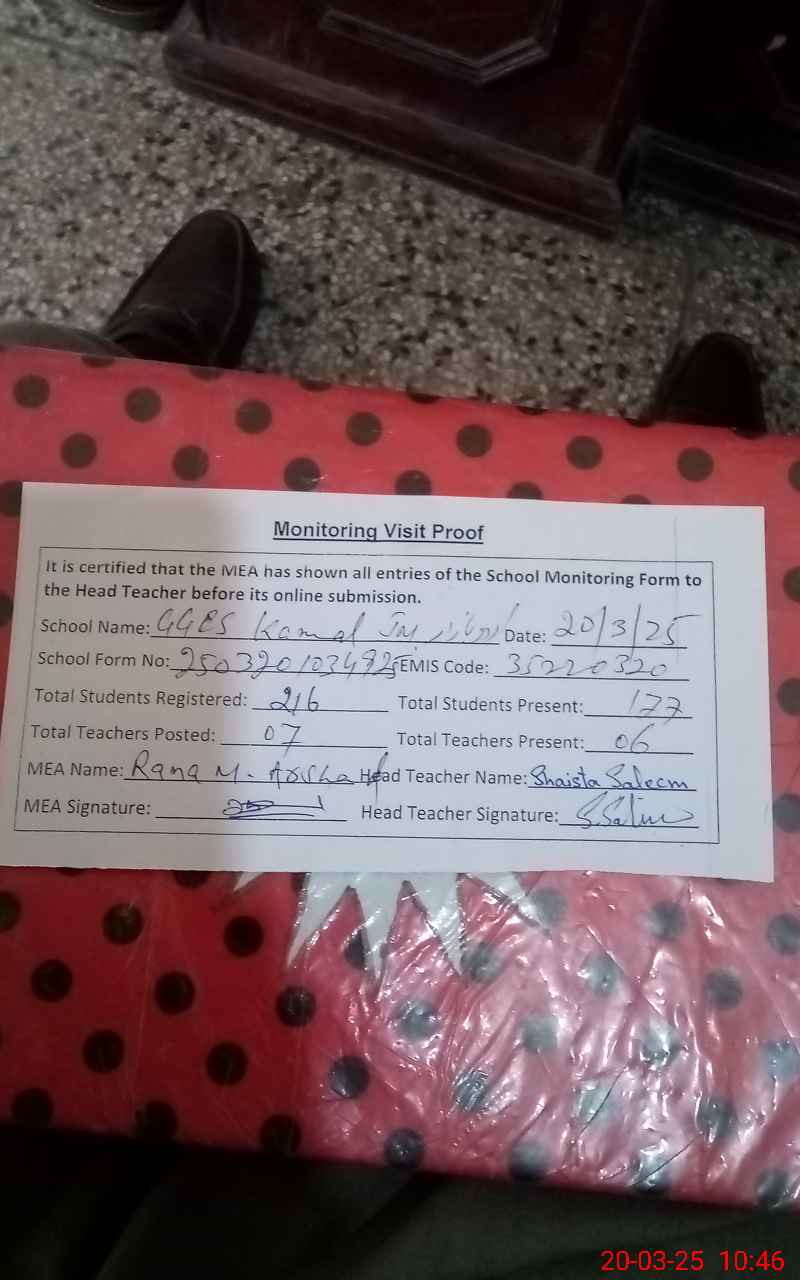 Monitoring Visit Proof
It is certified that the MEA has shown all entries of the School Monitoring Form to
the Head Teacher before its online submission.
School Name: GGES Kamal Date: 20/3/25
School Form No: 2503201034925 EMIS Code: 35220320
Total Students Registered: 216 Total Students Present: 177
Total Teachers Posted: 07 Total Teachers Present: 06
MEA Name: Rana M. Arshad Head Teacher Name: Shaista Saleem
MEA Signature: Head Teacher Signature:
20-03-25 10:46